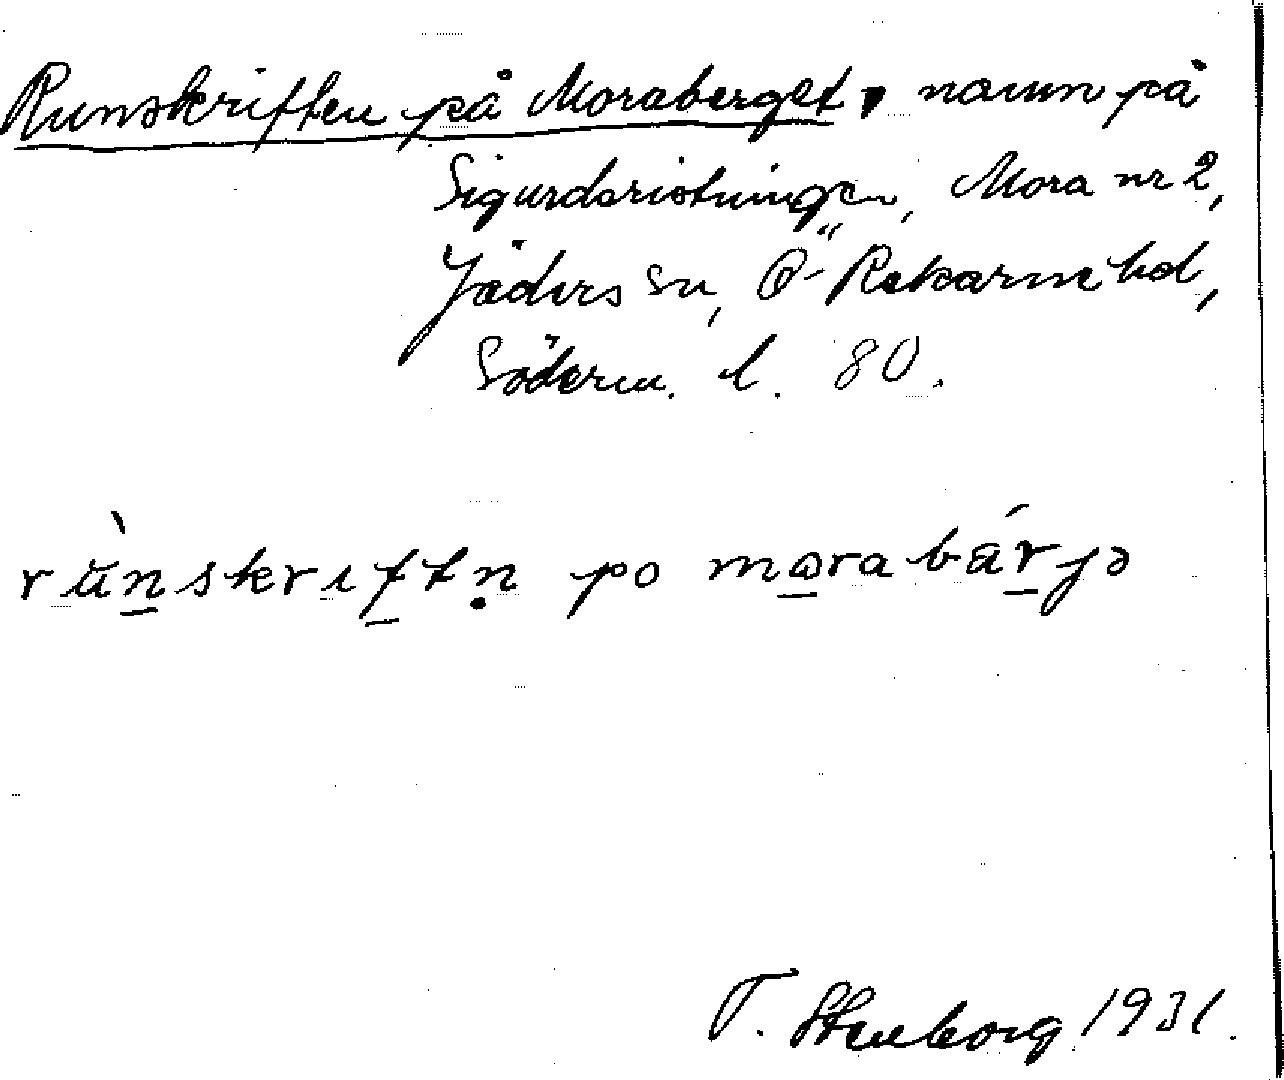 Runskriften på Moraberget, namn på
Sigurdsristningen, Mora nr 2,
Jäders sn, Ö Rekarne hd,
Söderm. l. 80.
rùnskriftn̥ po morabárjə
T. Stenborg 1931.